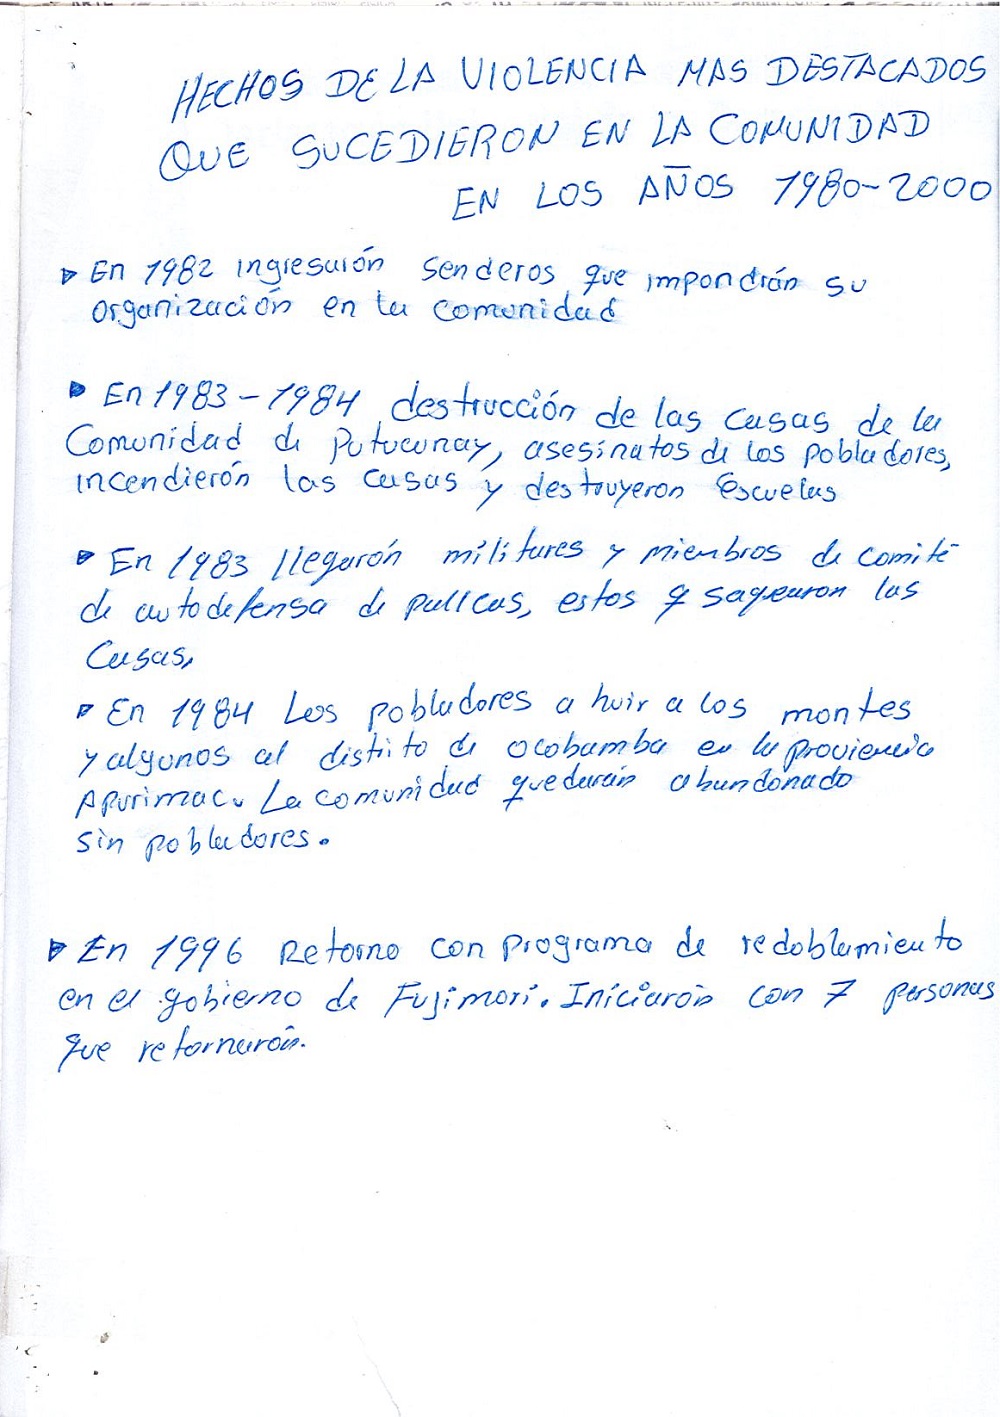 HECHOS DE LA VIOLENCIA MAS DESTACADOS
QUE SUCEDIERON EN LA COMUNIDAD
EN LOS AÑOS 1980-2000
En 1982 ingresarón Senderos que impondrán su
organización en la comunidad
En 1983-1984 destrucción de las casas de la
Comunidad de Putucunay, asesinatos de los pobladores,
incendierón las casas y destruyeron Escuelas
En 1983 llegarón militares y miembros de comité
de autodefensa de pallcas, estos q saquearon las
Casas.
En 1984 Los pobladores a huir a los montes
y algunos al distrito de ocobamba en la proviencia
Apurimac. La comunidad quedarán abandonado
sin pobladores.
En 1996 Retorno con programa de redoblamiento
en el gobierno de Fujimori. Iniciarón con 7 personas
que retornarón.